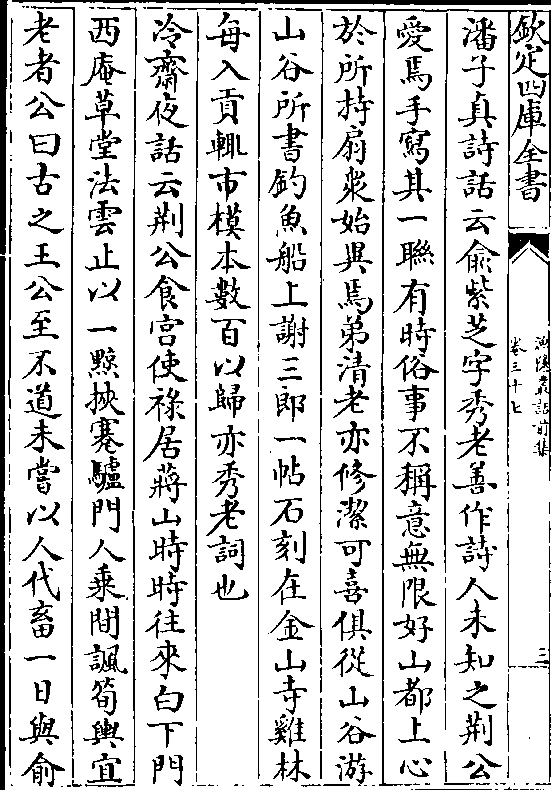 欽定四庫全書
漁隱叢話前集
卷三十七
三
潘子真詩話云俞紫芝字秀老善作詩人未知之荆公
愛焉手寫其一聯有時俗事不稱意無限好山都上心
於所持扇衆始異焉弟清老亦修潔可喜俱從山谷游
山谷所書釣魚船上謝三郎一帖石刻在金山寺雞林
每入貢輒市模本數百以歸亦秀老詞也
冷齋夜話云荆公食宮使祿居蔣山時時往來白下門
西庵草堂法雲止以一黥挾蹇驢門人乘間諷筍輿宜
老者公曰古之王公至不道未嘗以人代畜一日與俞